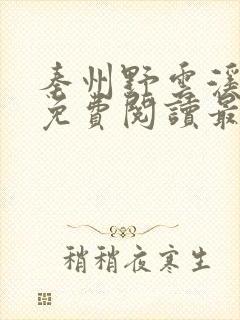 秦州野雲溪
免費閱讀最
稍稍夜寒生